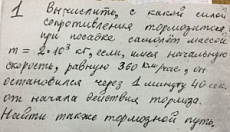 1 Вычислите, с какой силой
сопротивления тормозится
при посадке самолёт массой
m = 2·10³ кг, если, имея начальную
скорость, равную 360 км/час, он
остановился через 1 минуту 40 сек.
от начала действия тормоза.
Найти также тормозной путь.